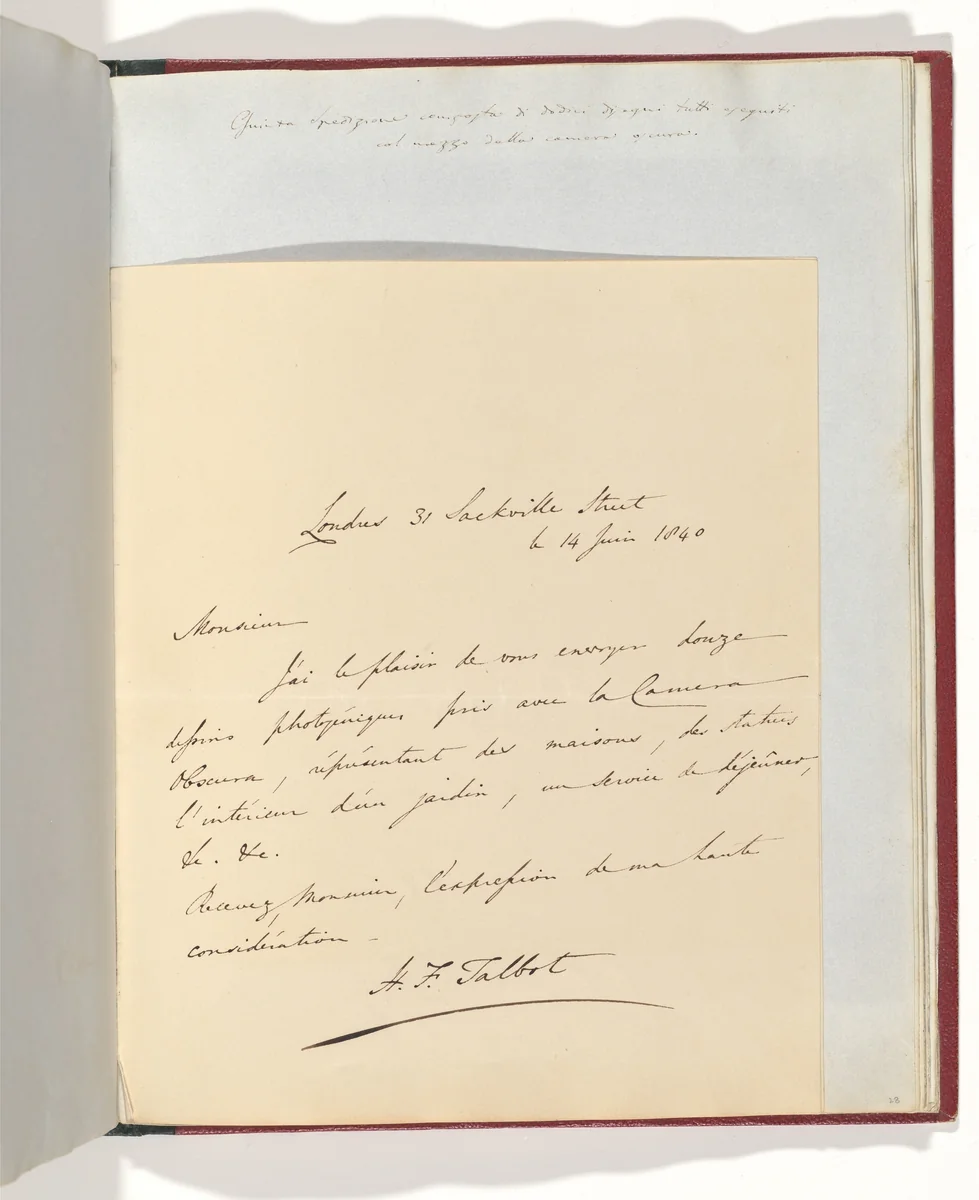 Quinta Spedizione composta di dodici disegni tutti eseguiti
col mezzo della camera oscura.
Londres 31 Sackville Street
le 14 Juin 1840
Monsieur
J'ai le plaisir de vous envoyer douze
dessins photogéniques pris avec la Camera
Obscura, réprésentant des maisons, des statues
l'intérieur d'un jardin, un service de déjeûner,
&c. &c.
Recevez, Monsieur, l'expression de ma haute
considération –
H. F. Talbot
28